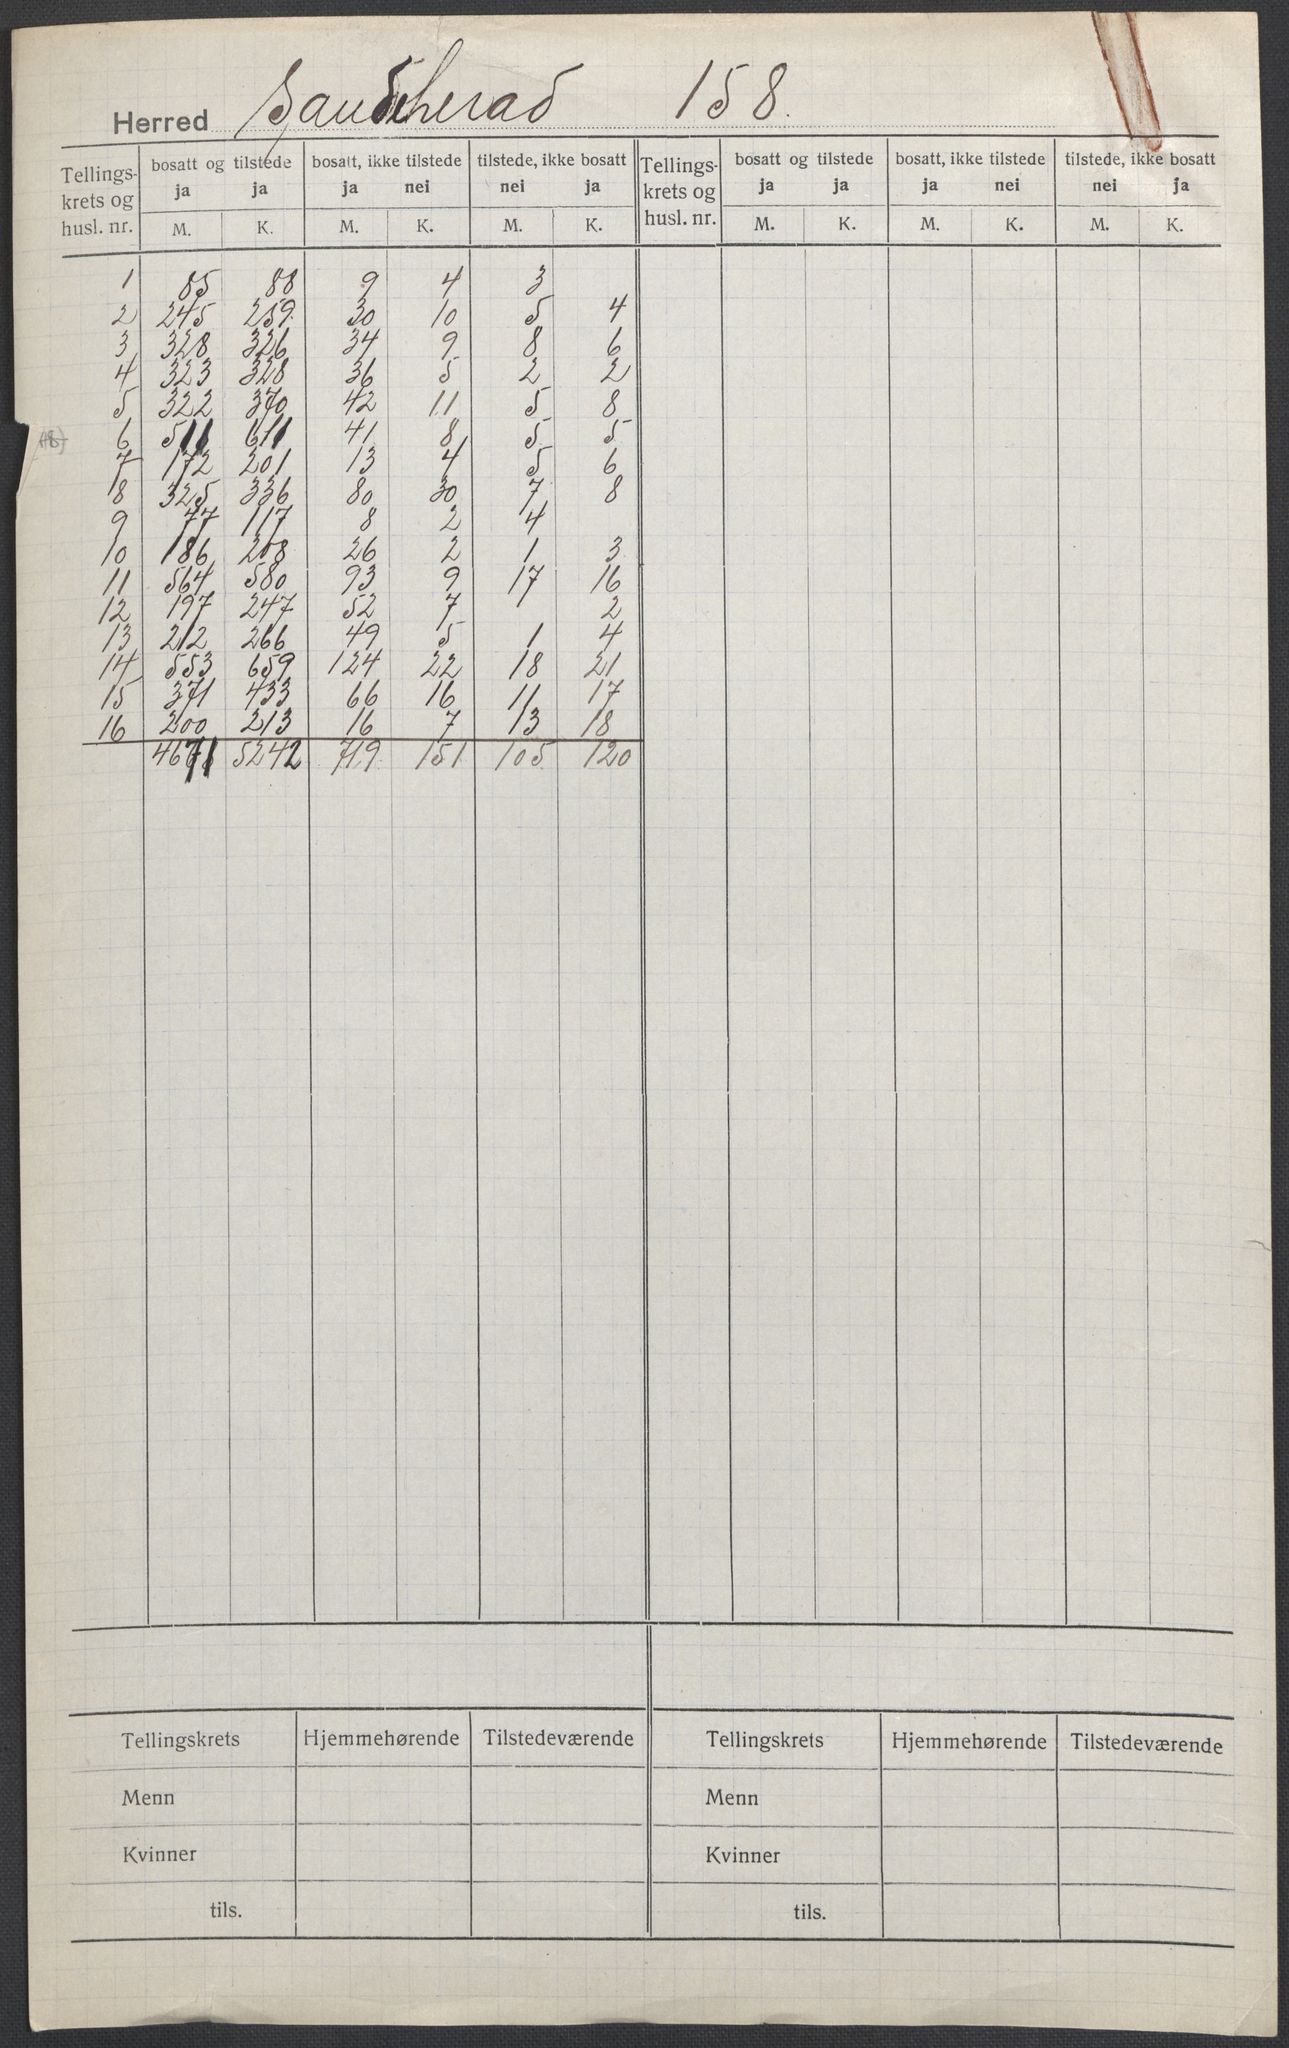 Herred Sandeherad 158.
Tellings-krets og husl. nr. bosatt og tilstede bosatt, ikke tilstede tilstede, ikke bosatt Tellings-krets og husl. nr. bosatt og tilstede bosatt, ikke tilstede tilstede, ikke bosatt
ja ja ja nei nei ja ja ja ja nei nei ja
M. K. M. K. M. K. M. K. M. K. M. K.
1 85 88 9 4 3
2 245 259 30 10 5 4
3 328 326 34 9 8 6
4 323 328 36 5 2 2
5 322 370 42 11 5 8
6 511 611 41 8 5 5
7 172 201 13 4 5 6
8 325 336 80 30 7 8
9 77 117 8 2 4
10 186 208 26 2 1 3
11 564 580 93 9 17 16
12 197 247 52 7 2
13 212 266 49 5 1 4
14 553 659 124 22 18 21
15 371 433 66 16 11 17
16 200 213 16 7 13 18
4671 5242 719 151 105 120
Tellingskrets Hjemmehørende Tilstedeværende Tellingskrets Hjemmehørende Tilstedeværende
Menn Menn
Kvinner Kvinner
tils. tils.